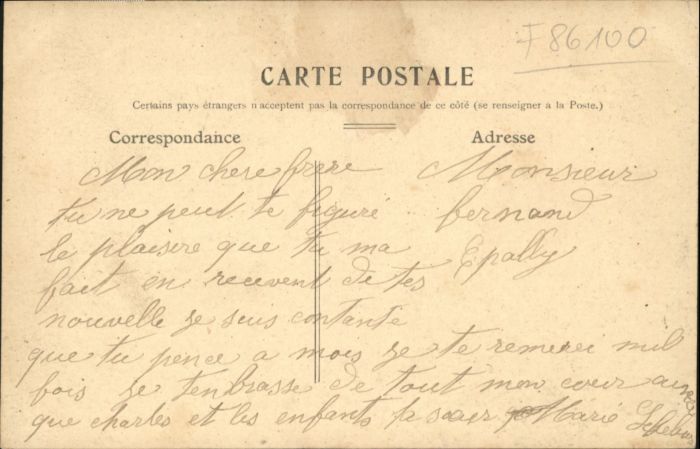 F 86100
CARTE POSTALE
Certains pays étrangers n'acceptent pas la correspondance de ce côté (se renseigner à la Poste.)
Correspondance
Mon chere frere
tu ne peut te figuré
le plaisire que tu ma
fait en recevent de tes
nouvelle je suis contante
que tu pence a mois je te remerci mil
fois je tenbrasse de tout mon cœur
que charles et les enfants ta sœur Marie Lefebvre
Adresse
Monsieur
fernand
Epally